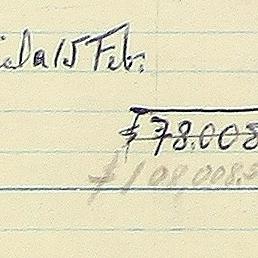 la 15 Feb.
$78.008
$108,008.